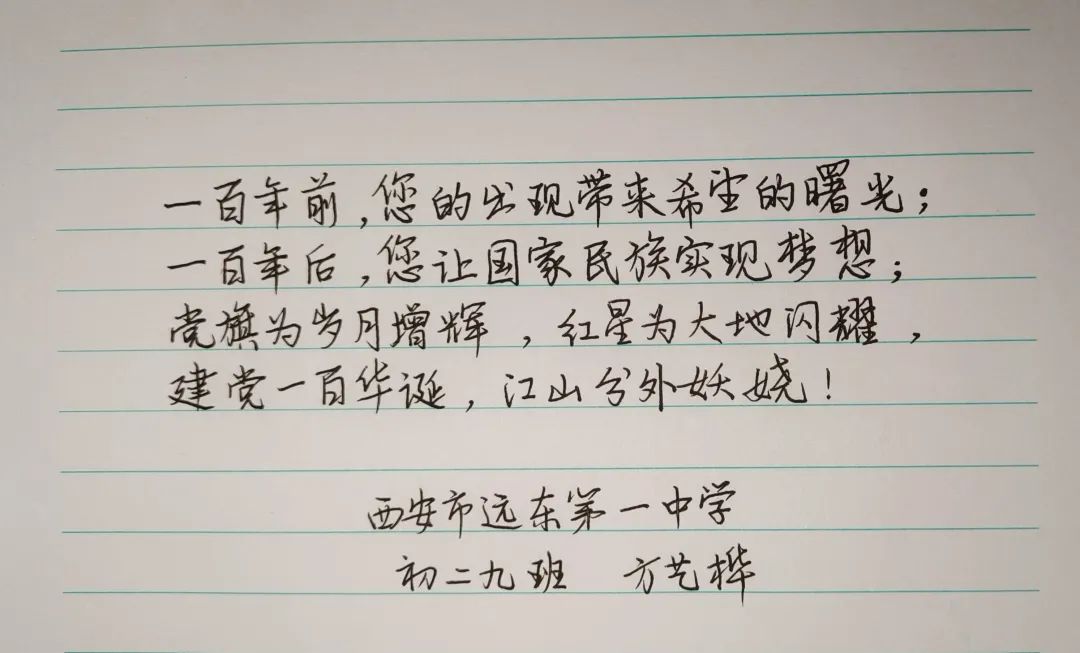 一百年前,您的出现带来希望的曙光;
一百年后,您让国家民族实现梦想;
党旗为岁月增辉,红星为大地闪耀,
建党一百华诞,江山分外妖娆!
西安市远东第一中学
初二九班 方艺桦